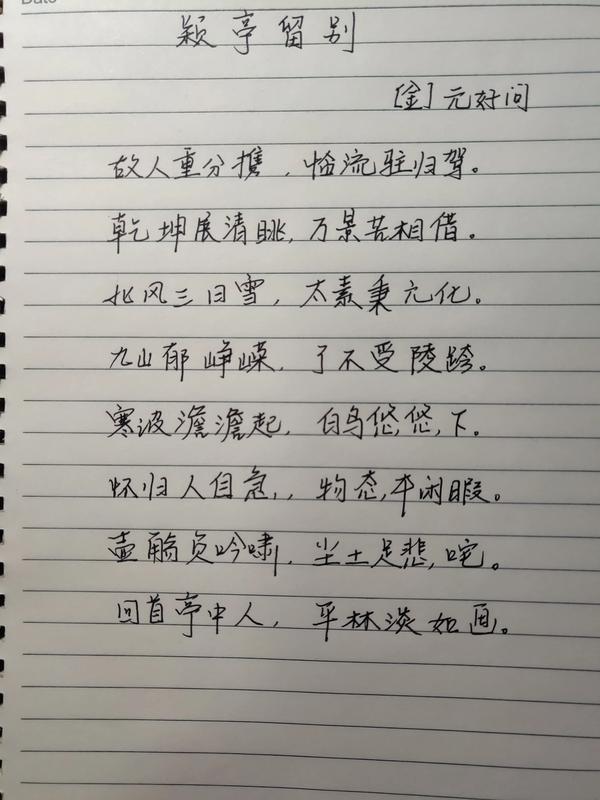 Date
颖亭留别
[金]元好问
故人重分携，临流驻归驾。
乾坤展清眺，万景苦相借。
北风三日雪，太素秉元化。
九山郁峥嵘，了不受陵跨。
寒波澹澹起，白鸟悠悠下。
怀归人自急，物态本闲暇。
壶觞负吟啸，尘土足悲咤。
回首亭中人，平林淡如画。